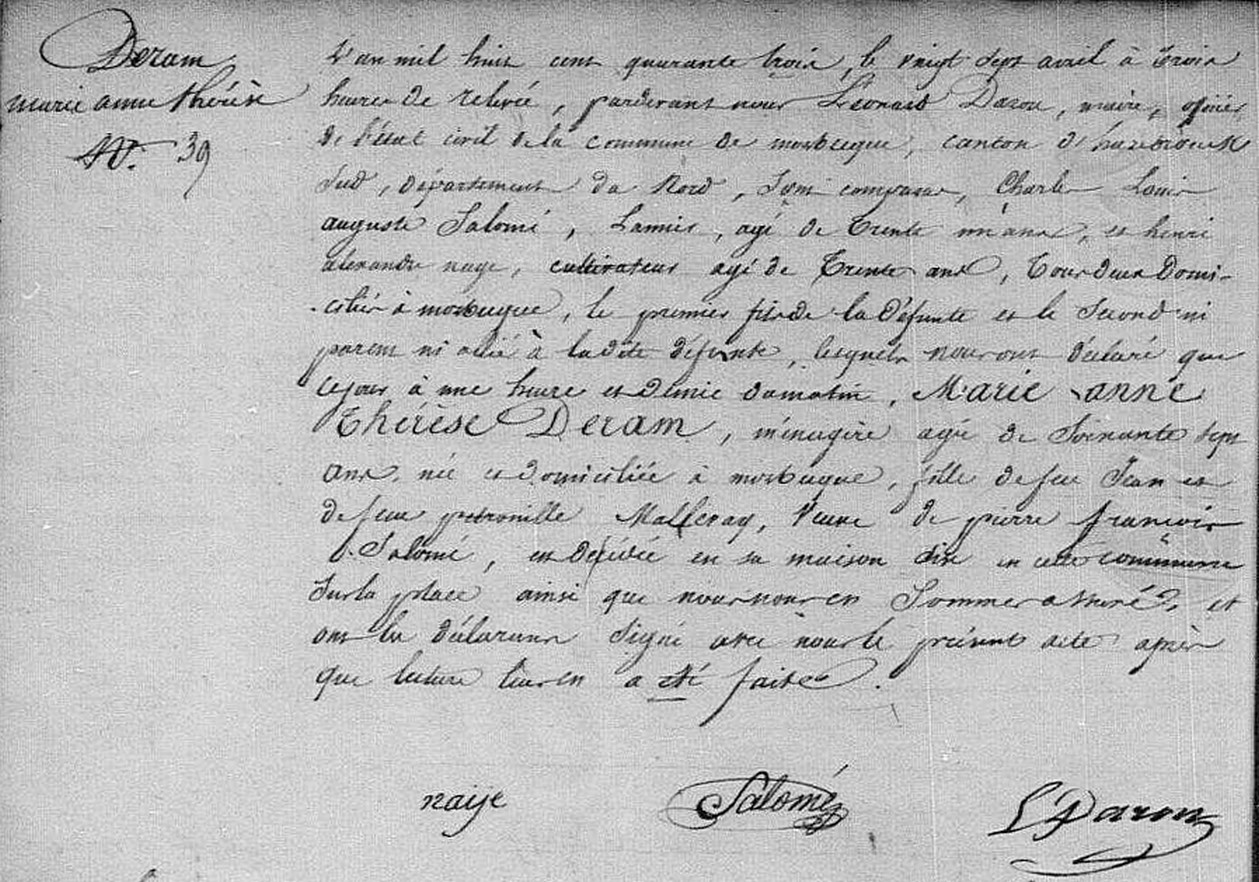 Deram
marie anne thérèse
N°. 39
L'an mil huit cent quarante trois, le vingt sept avril à trois
heures de relevée, pardevant nous Léonard Darou, maire, officier
de l'état civil de la commune de morbecque, canton d'hazebrouck
sud, département du Nord, sont comparus, Charles Louis
auguste Salomé, âgé de trente un ans, et henri
alexandre naye, cultivateur agé de trente ans, tous deux Domi-
-ciliés à morbecque, le premier fils de la défunte et le second ni
parent ni allié à la dite défunte, lesquels nous ont déclaré que
cejour à une heure et demie du matin, Marie anne
Thérèse Deram, ménagère agée de soixante sept
ans, née et domiciliée à morbecque, fille de feu Jean et
de feue petronille, veuve de pierre françois
Salomé, est décédée en sa maison sise en cette commune
sur la place ainsi que nous nous en sommes assuré, et
ont les déclarans signé avec nous le présent acte après
que lecture leur en a été faite.
naije
Salomé
L Darou